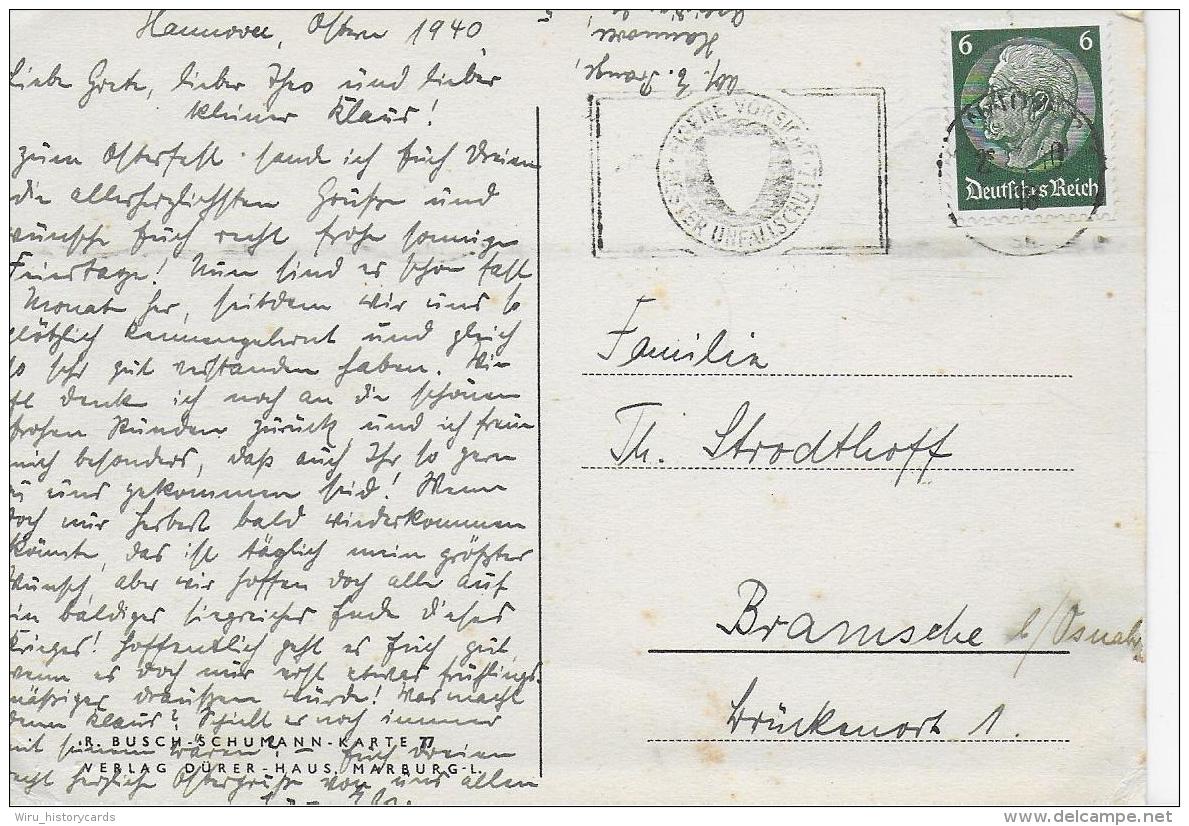 Hannover, Ostern 1940
Liebe Grete, lieber Theo und lieber
kleiner Klaus!
Zum Osterfest sende ich Euch dreien
die allerherzlichsten Grüße und
wünsche Euch recht frohe sonnige
Feiertage! Nun sind es schon fast
Monate her, seitdem wir uns so
plötzlich kennengelernt und gleich
so sehr gut verstanden haben. Wie
oft denke ich noch an die schönen
frohen Stunden zurück, und ich freue
mich besonders, daß auch Ihr so gern
zu uns gekommen seid! Wenn
doch nur Herbert bald wiederkommen
könnte, das ist täglich mein größter
Wunsch, aber wir hoffen doch alle auf
ein baldiges siegreiches Ende dieses
Krieges! Hoffentlich geht es Euch gut,
wenn es doch nur erst etwas frühlings-
mäßiger draußen würde! Was macht
denn Klaus? Spielt er noch immer
mit seinem – Euch dreien
recht herzliche Ostergrüße von uns allen
R. BUSCH-SCHUMANN-KARTE 77
VERLAG DÜRER-HAUS, MARBURG-L.
Abs. E. Prange,
Hannover,
EIGENE VORSICHT
BESTER UNFALLSCHUTZ
6 6
Deutsches Reich
Familie
Th. Strodthoff
Bramsche b/Osnabr
Brückenort 1.
Wiru_historycards
delcampe.net